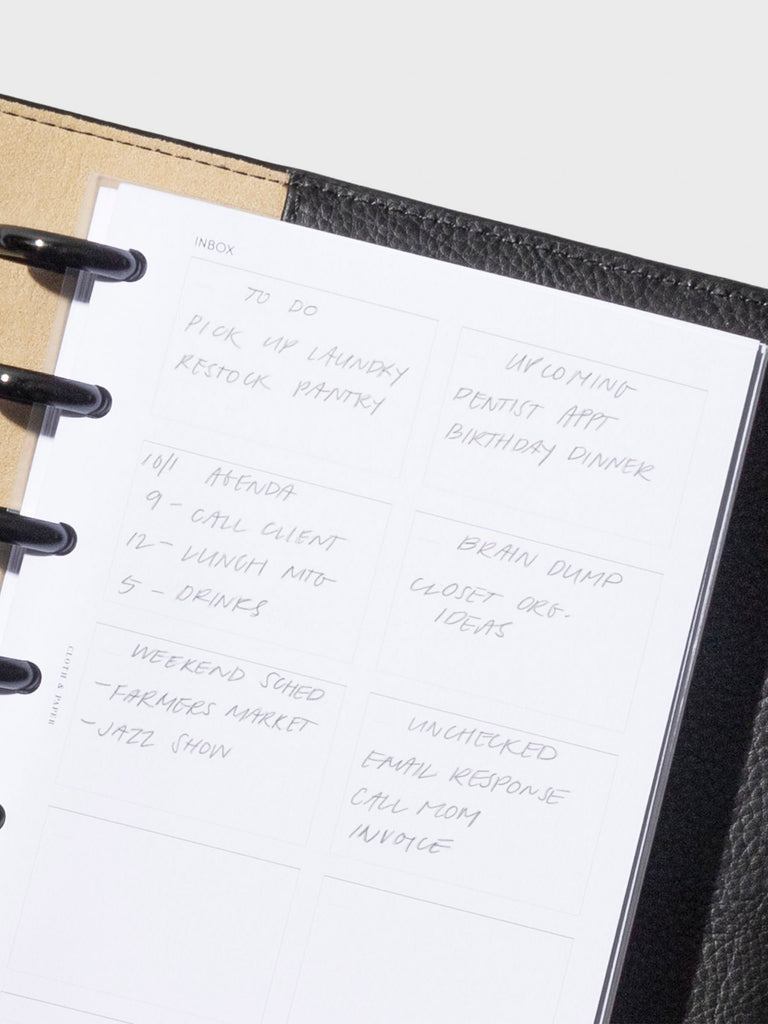 INBOX
TO DO
PICK UP LAUNDRY
RESTOCK PANTRY
UPCOMING
DENTIST APPT
BIRTHDAY DINNER
10/1 AGENDA
9 - CALL CLIENT
12 - LUNCH MTG
5 - DRINKS
BRAIN DUMP
CLOSET ORG.
IDEAS
WEEKEND SCHED
- FARMERS MARKET
- JAZZ SHOW
UNCHECKED
EMAIL RESPONSE
CALL MOM
INVOICE
CLOTH & PAPER